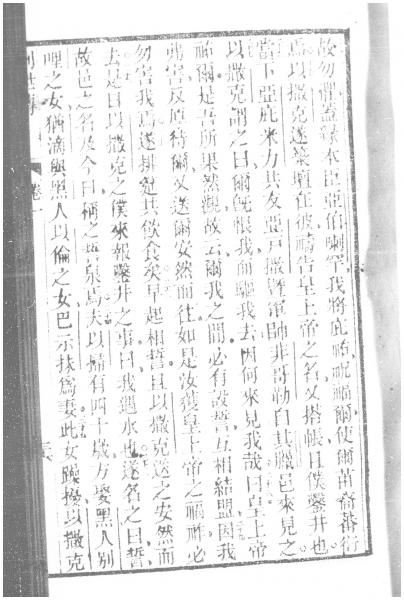 故勿懼蓋緣本臣亞伯喇罕我將庇祐賜福爾使爾苗裔蕃衍
焉以撒克遂築壇在彼禱告皇上帝之名又搭帳且僕鑿井也
當下亞庇米力共友亞戶撒軍師非哥勒自其臘邑來見之
以撒克謂之曰爾既恨我而驅我去因何來見我哉曰皇上帝
祐爾是吾所果然觀故云爾我之間必有設誓互相結盟因我
弗害反厚待爾又送爾安然而往如是汝獲皇上帝之福祚必
勿害我焉遂排筵共飲食矣早起相誓且以撒克送之安然而
去是日以撒克之僕來報鑿井之事曰我遇水也遂名之曰誓
故邑之名及今日稱之誓泉焉夫以掃有四十歲方娶黑人別
哩之女猶滴與黑人以倫之女巴示抹為妻此女躁擾以撒克
創世傳 卷一